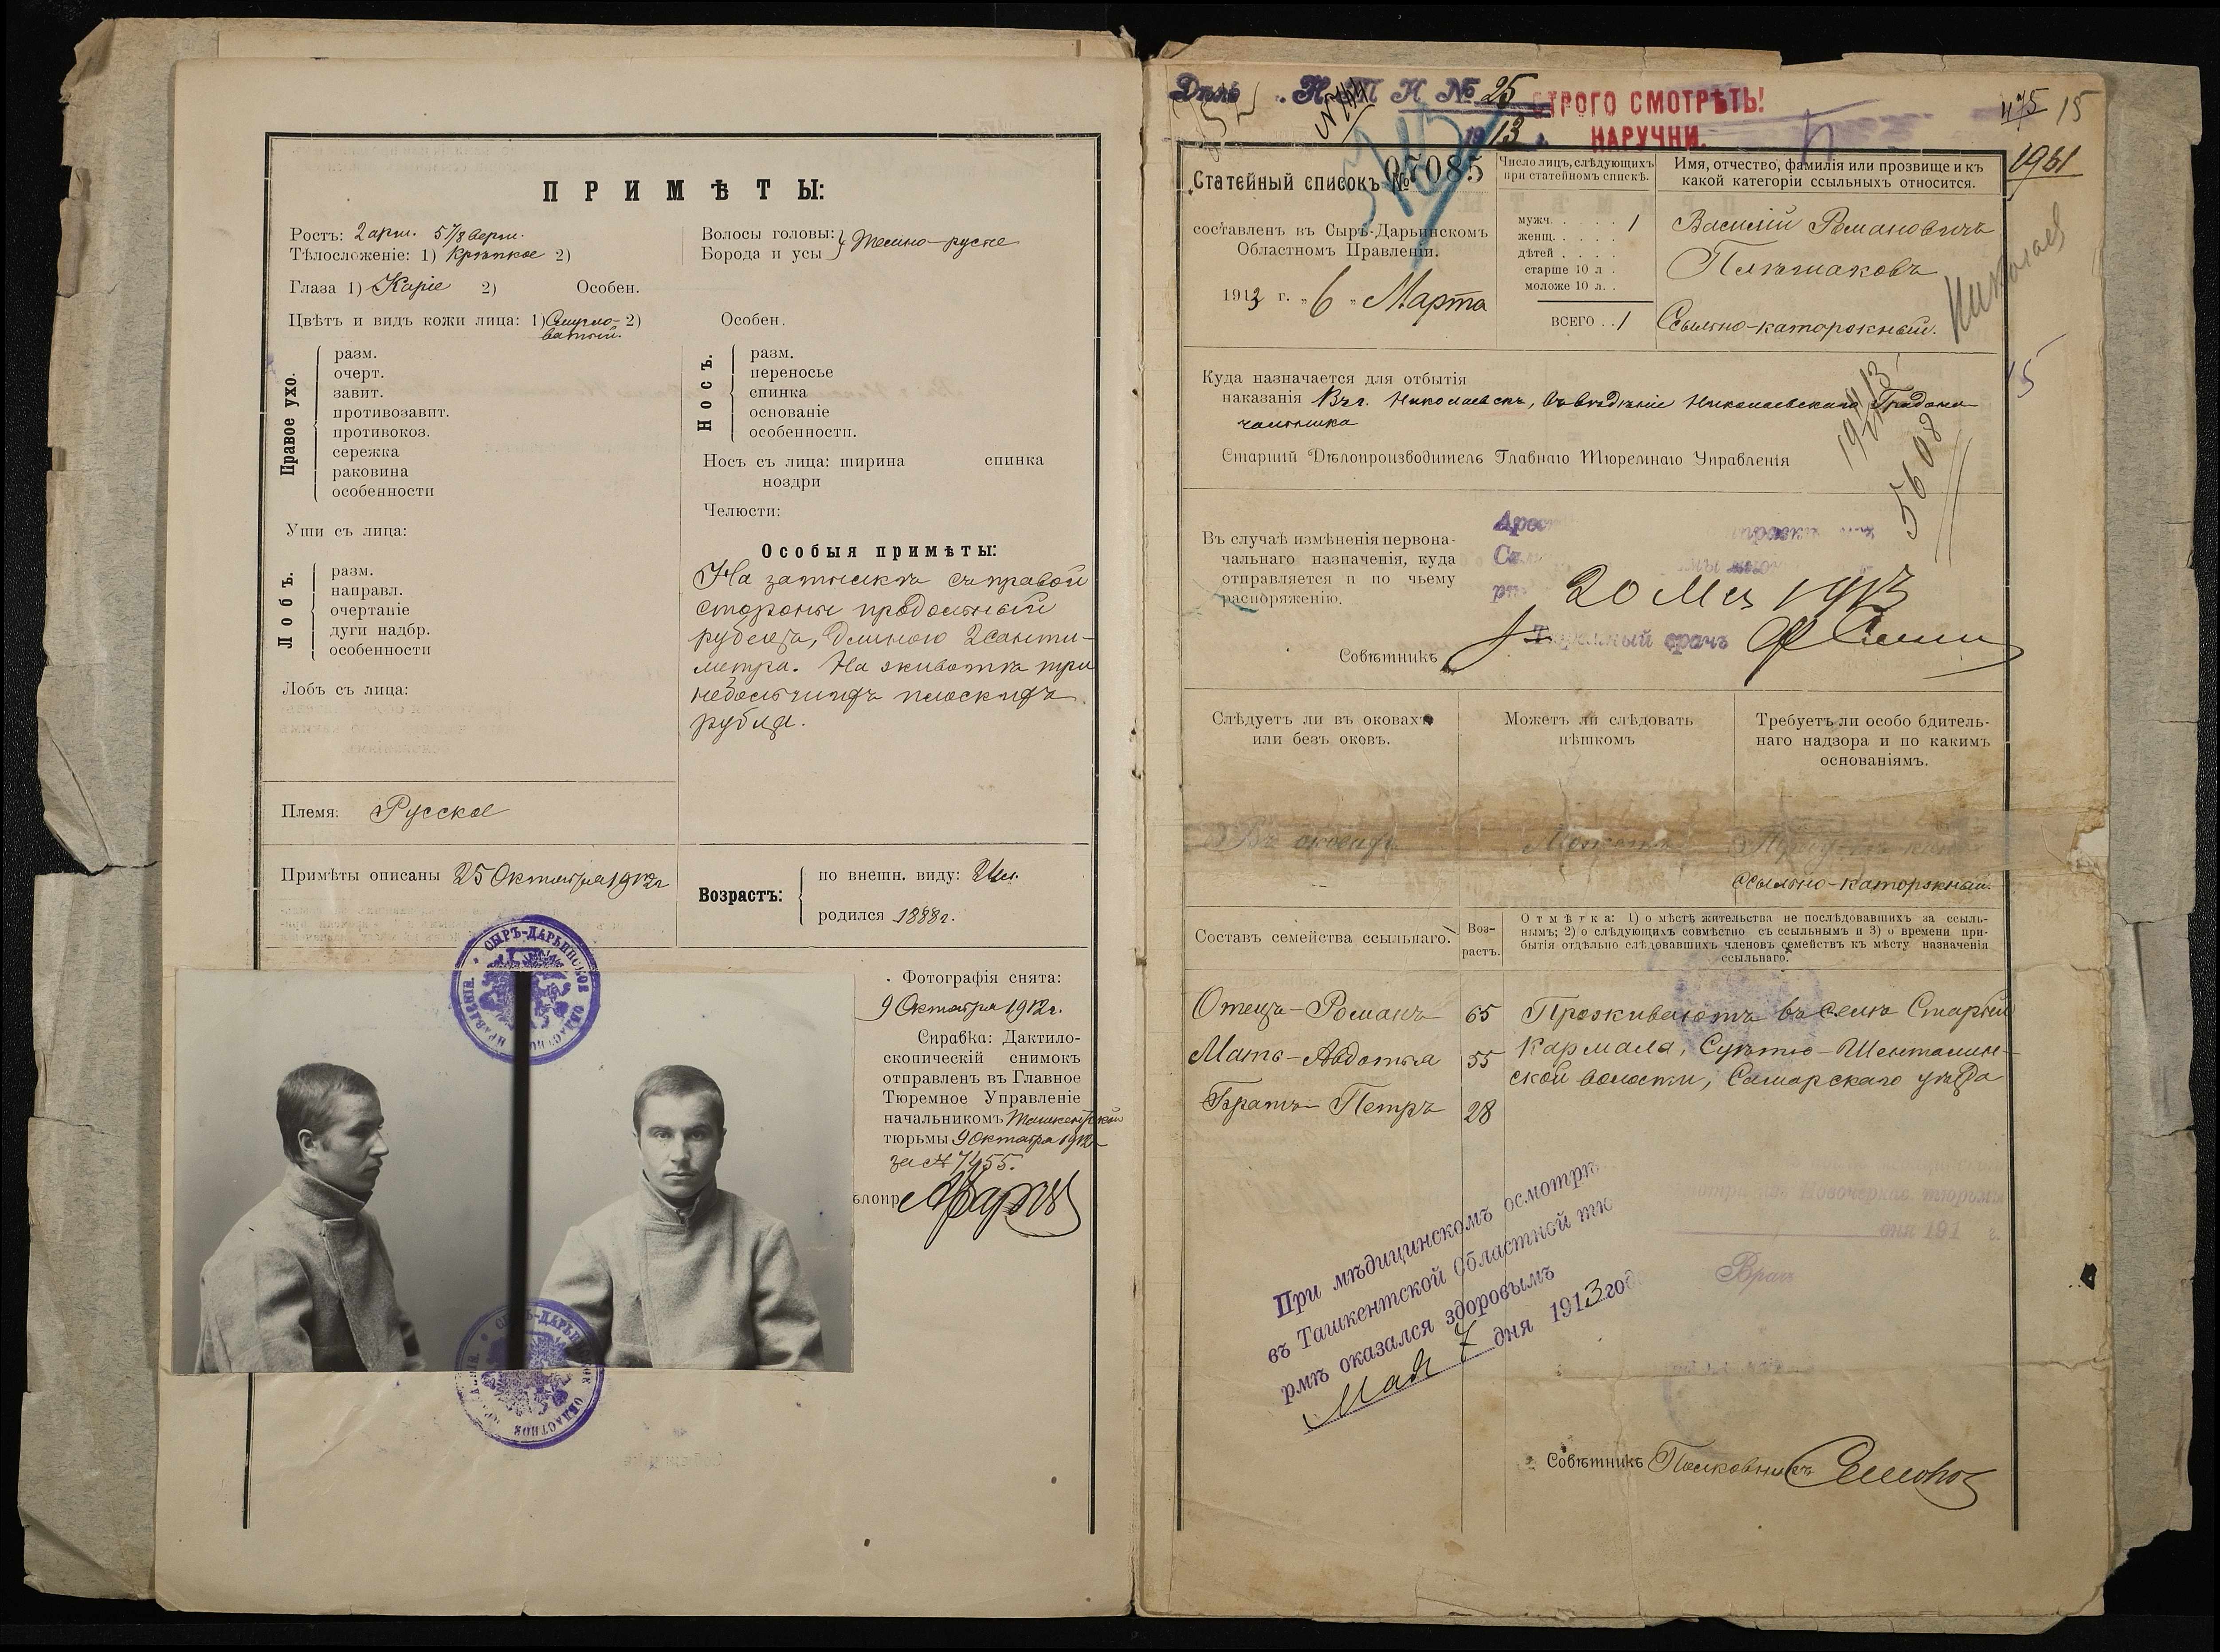 ПРИМѢТЫ:
Ростъ: 2 арш. 5 7/8 верш.
Тѣлосложеніе: 1) Крѣпкое 2)
Волосы головы: } Темно-русые
Борода и усы
Глаза 1) Каріе 2) Особен.
Цвѣтъ и видъ кожи лица: 1) Смугло- 2) Особен.
ватый.
Правое ухо.
разм.
очерт.
завит.
противозавит.
противокоз.
сережка
раковина
особенности
Носъ.
разм.
переносье
спинка
основаніе
особенности.
Носъ съ лица: ширина спинка
ноздри
Челюсти:
Уши съ лица:
Лобъ.
разм.
направл.
очертаніе
дуги надбр.
особенности
Лобъ съ лица:
Особыя примѣты:
На затылкѣ съ правой
стороны продольный
рубецъ, длиною 2 санти-
метра. На животѣ три
небольшихъ плоскихъ
рубца.
Племя: Русское
Примѣты описаны 25 Октября 1912 г
Возрастъ:
по внешн. виду:
родился 1888 г.
СЫРЪ-ДАРЬИНСКОЕ ОБЛАСТНОЕ ПРАВЛЕНІЕ
Фотографія снята:
9 Октября 1912 г.
Справка: Дактило-
скопическій снимокъ
отправленъ въ Главное
Тюремное Управленіе
начальникомъ Ташкентской
тюрьмы 9 Октября 1912 г
за № 7455.
Дѣло Н Т Н № 25
1913 г.
СТРОГО СМОТРѢТЬ!
НАРУЧНИ.
475 15
1961
Статейный списокъ № 07085
составленъ въ Сыръ-Дарьинскомъ
Областномъ Правленіи.
1913 г. „6„ Марта
Число лицъ, слѣдующихъ
при статейномъ спискѣ.
мужч. . . . . . 1
женщ. . . . .
дѣтей . . . .
старше 10 л .
моложе 10 л. .
ВСЕГО . . 1
Имя, отчество, фамилія или прозвище и къ
какой категоріи ссыльныхъ относится.
Василій Романовичъ
Плѣшаковъ
Ссыльно-каторжный.
Николаев
15
Куда назначается для отбытія
наказанія Въ г. Николаевскъ, въ вѣдѣніе Николаевскаго Градона-
чальника
1913
5608
Старшій Дѣлопроизводитель Главнаго Тюремнаго Управленія
Въ случаѣ измѣненія первона-
чальнаго назначенія, куда
отправляется и по чьему
распоряженію.
20 Мая 1913
Тюремный врачъ
Совѣтникъ
Слѣдуетъ ли въ оковахъ
или безъ оковъ.
Можетъ ли слѣдовать
пѣшкомъ
Требуетъ ли особо бдитель-
наго надзора и по какимъ
основаніямъ.
Въ оковахъ Можетъ Требуетъ какъ
ссыльно-каторжный.
Составъ семейства ссыльнаго.
Воз-
растъ.
Отмѣтка: 1) о мѣстѣ жительства не послѣдовавшихъ за ссыль-
нымъ; 2) о слѣдующихъ совмѣстно съ ссыльнымъ и 3) о времени при-
бытія отдѣльно слѣдовавшихъ членовъ семействъ къ мѣсту назначенія
ссыльнаго.
Отецъ-Романъ 65 Проживаютъ въ селѣ Старый
Мать-Авдотья 55 Кармала, Сунтьо-Шенталин-
ской волости, Самарскаго уѣзда
Братъ Петръ 28
Новочеркас. тюрьмы
дня 191 г.
Врач
При мѣдицинскомъ осмотрѣ
въ Ташкентской Областной тю
рмѣ оказался здоровымъ
Мая 7 дня 1913 года
Совѣтникъ Полковникъ